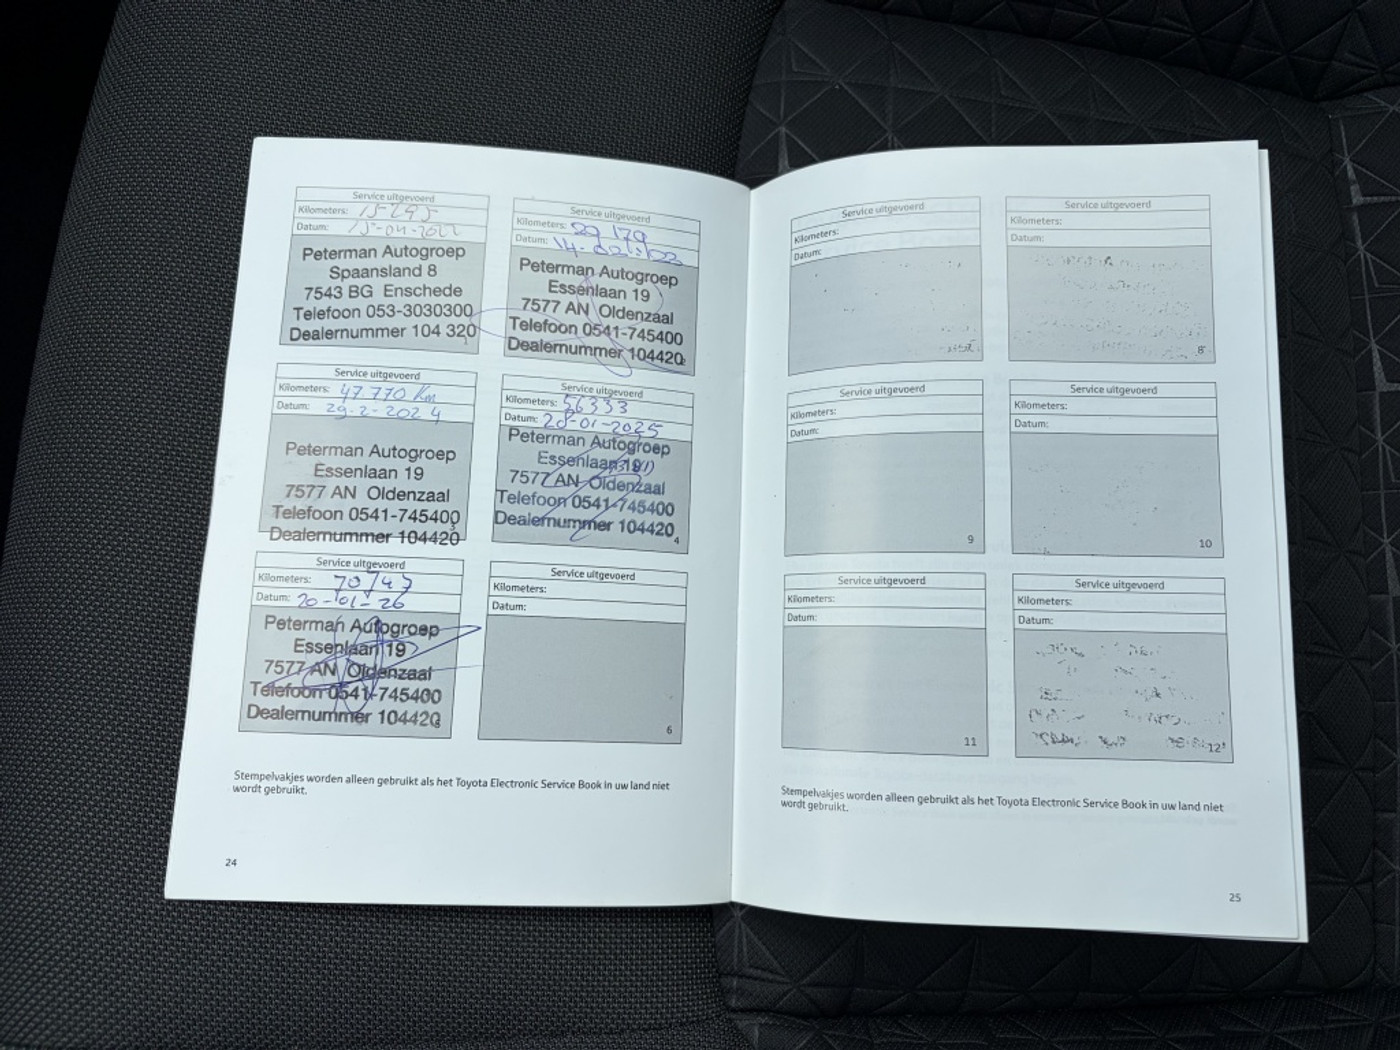 Service uitgevoerd
Kilometers: 15295
Datum: 15-04-2022
Peterman Autogroep
Spaansland 8
7543 BG Enschede
Telefoon 053-3030300
Dealernummer 104 320
Service uitgevoerd
Kilometers: 29 179
Datum: 14-
Peterman Autogroep
Essenlaan 19
7577 AN Oldenzaal
Telefoon 0541-745400
Dealernummer 104420
Service uitgevoerd
Kilometers: 47 770 Km
Datum: 29-2-2024
Peterman Autogroep
Essenlaan 19
7577 AN Oldenzaal
Telefoon 0541-745400
Dealernummer 104420
3
Service uitgevoerd
Kilometers: 56333
Datum: 28-01-2025
Peterman Autogroep
Essenlaan 19
7577 AN Oldenzaal
Telefoon 0541-745400
Dealernummer 104420
4
Service uitgevoerd
Kilometers:
Datum: 20-01-26
Peterman Autogroep
Essenlaan 19
7577 AN Oldenzaal
Telefoon 0541-745400
Dealernummer 104420
Service uitgevoerd
Kilometers:
Datum:
6
Stempelvakjes worden alleen gebruikt als het Toyota Electronic Service Book in uw land niet
wordt gebruikt.
24
Service uitgevoerd
Kilometers:
Datum:
Service uitgevoerd
Kilometers:
Datum:
8
Service uitgevoerd
Kilometers:
Datum:
9
Service uitgevoerd
Kilometers:
Datum:
10
Service uitgevoerd
Kilometers:
Datum:
11
Service uitgevoerd
Kilometers:
Datum:
12
Stempelvakjes worden alleen gebruikt als het Toyota Electronic Service Book in uw land niet
wordt gebruikt.
25